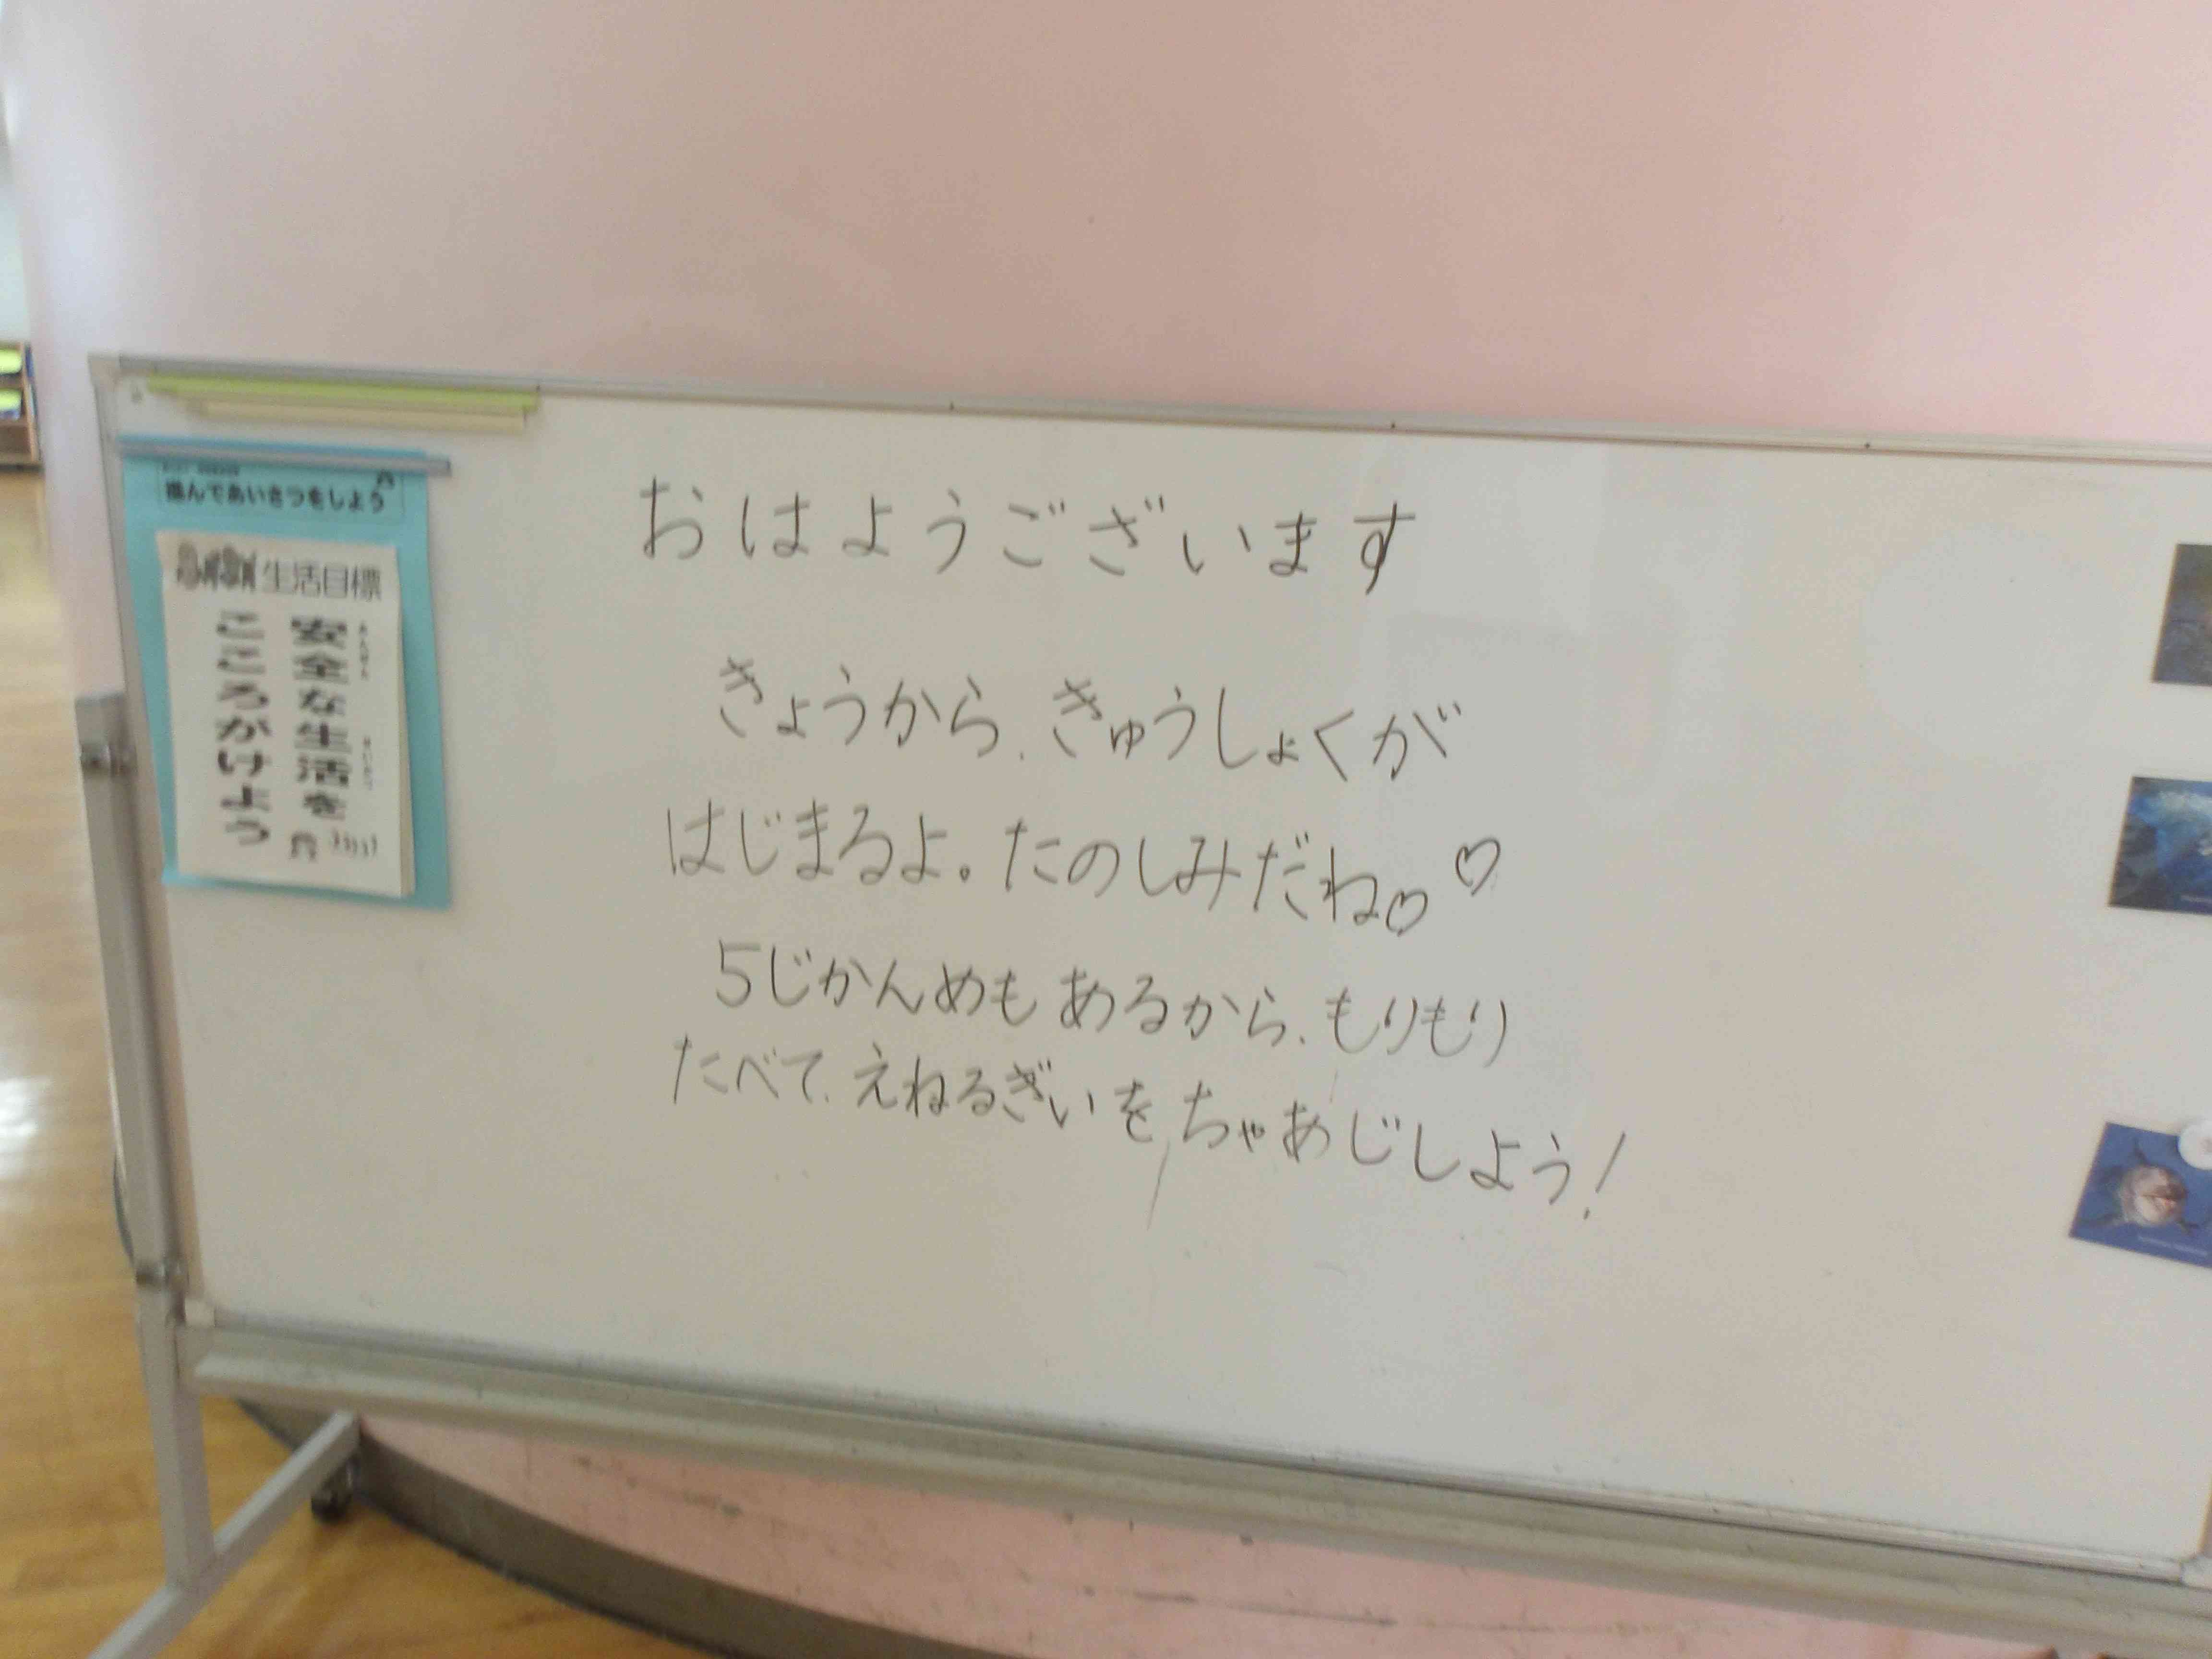 進んであいさつをしよう
生活目標
安全な生活を
こころがけよう
おはようございます
きょうから、きゅうしょくが
はじまるよ。たのしみだね。♡♡
5じかんめも あるから、もりもり
たべて、えねるぎいを ちゃあじしよう!